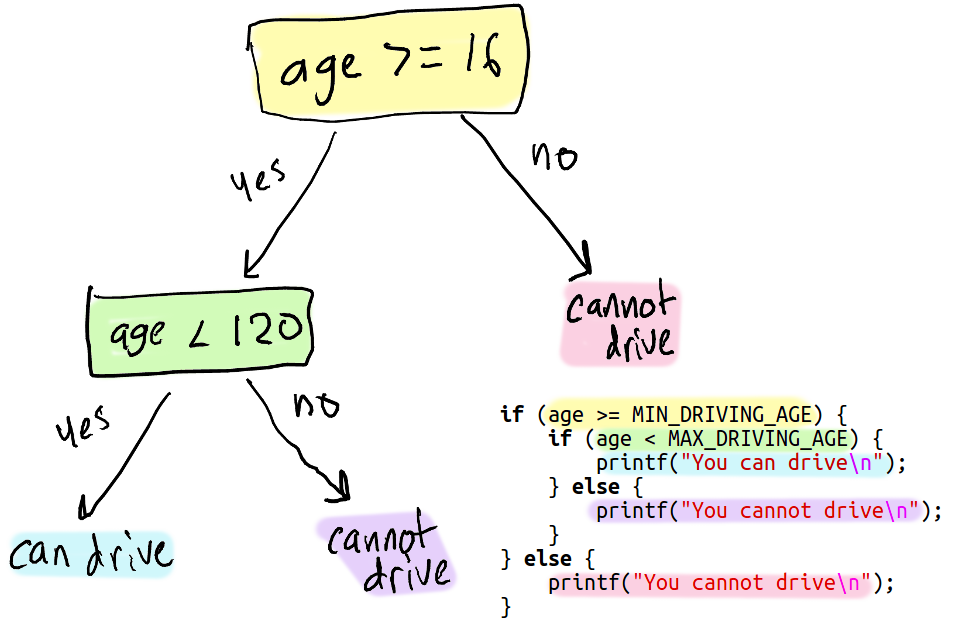 age >= 16
yes
no
age < 120
cannot
drive
yes
no
can drive
cannot
drive
if (age >= MIN_DRIVING_AGE) {
    if (age < MAX_DRIVING_AGE) {
        printf("You can drive\n");
    } else {
        printf("You cannot drive\n");
    }
} else {
    printf("You cannot drive\n");
}